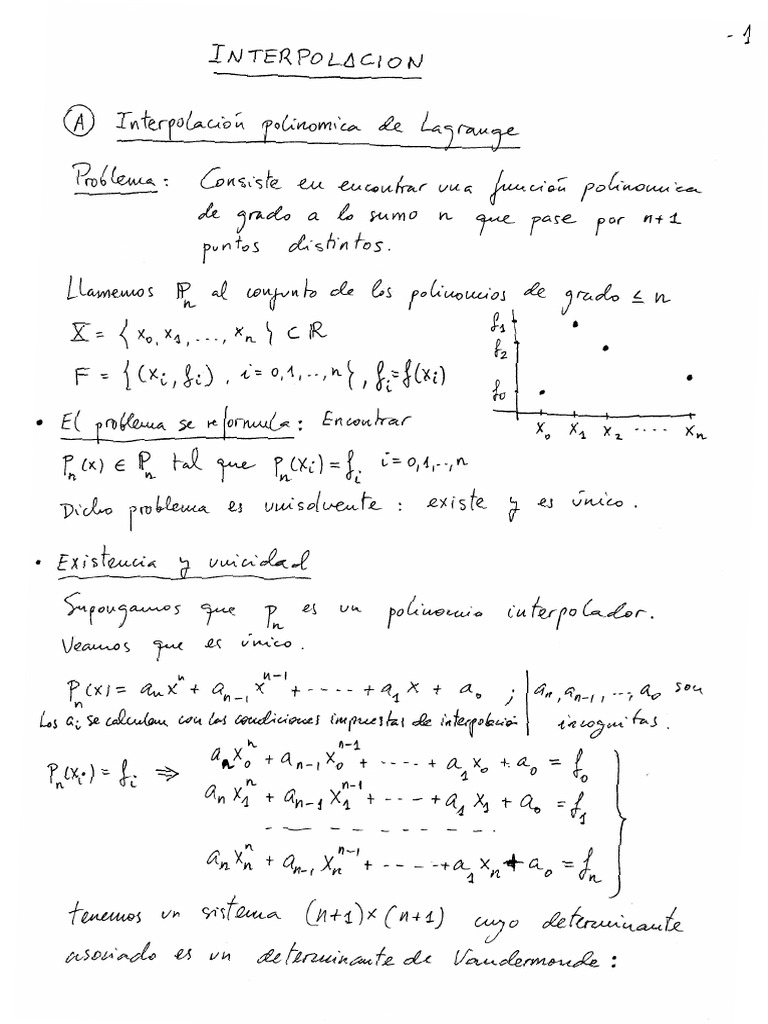 - 1
INTERPOLACION
Ⓐ Interpolación polinomica de Lagrange
Problema: Consiste en encontrar una función polinomica
de grado a lo sumo n que pase por n+1
puntos distintos.
Llamemos ℙₙ al conjunto de los polinomios de grado ≤ n
X = { x₀, x₁, ..., xₙ } ⊂ ℝ
F = { (xᵢ, fᵢ), i = 0, 1, .., n }, fᵢ = f(xᵢ)
f₁
f₂
f₀
x₀ x₁ x₂ .... xₙ
• El problema se reformula: Encontrar
Pₙ(x) ∈ ℙₙ tal que Pₙ(xᵢ) = fᵢ i = 0, 1, .., n
Dicho problema es unisolvente: existe y es único.
• Existencia y unicidad
Supongamos que Pₙ es un polinomio interpolador.
Veamos que es único.
Pₙ(x) = aₙxⁿ + aₙ₋₁ xⁿ⁻¹ + ----- + a₁ x + a₀ ; | aₙ, aₙ₋₁, ..., a₀ son
Los aᵢ se calculan con las condiciones impuestas de interpolación | incognitas.
Pₙ(xᵢ) = fᵢ ⇒ aₙx₀ⁿ + aₙ₋₁x₀ⁿ⁻¹ + ---- + a₁x₀ + a₀ = f₀
aₙx₁ⁿ + aₙ₋₁x₁ⁿ⁻¹ + ---- + a₁x₁ + a₀ = f₁
- - - - - - - - -
aₙxₙⁿ + aₙ₋₁xₙⁿ⁻¹ + ---- + a₁xₙ + a₀ = fₙ
tenemos un sistema (n+1)×(n+1) cuyo determinante
asociado es un determinante de Vandermonde: